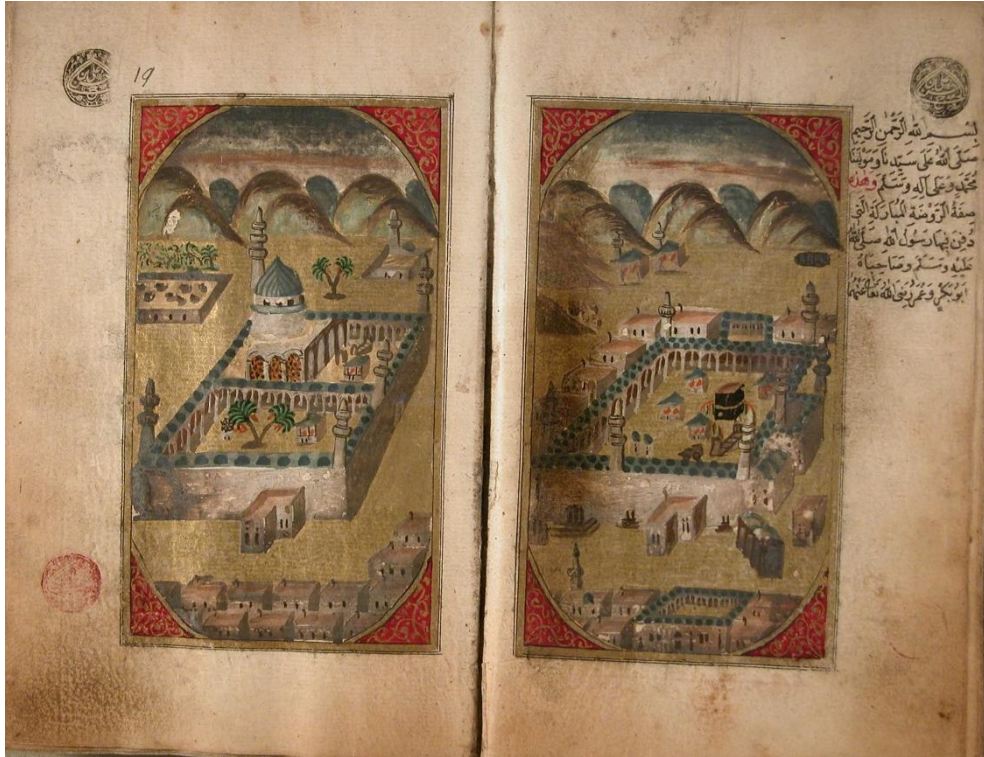 بِسْمِ اللهِ الرَّحْمٰنِ الرَّحِيمِ
صَلَّى اللهُ عَلَى سَيِّدِنَا وَمَوْلٰينَا
مُحَمَّدٍ وَعَلَى اٰلِهِ وَسَلَّمَ وَهٰذِهِ
صِفَةُ الرَّوْضَةِ الْمُبَارَكَةِ الَّتِي
دُفِنَ فِيهَا رَسُولُ اللهِ صَلَّى اللهُ
عَلَيْهِ وَسَلَّمَ وَصَاحِبَاهُ
اَبُو بَكْرٍ وَعُمَرُ رَضِىَ اللهُ تَعَالَى عَنْهُمَا
19